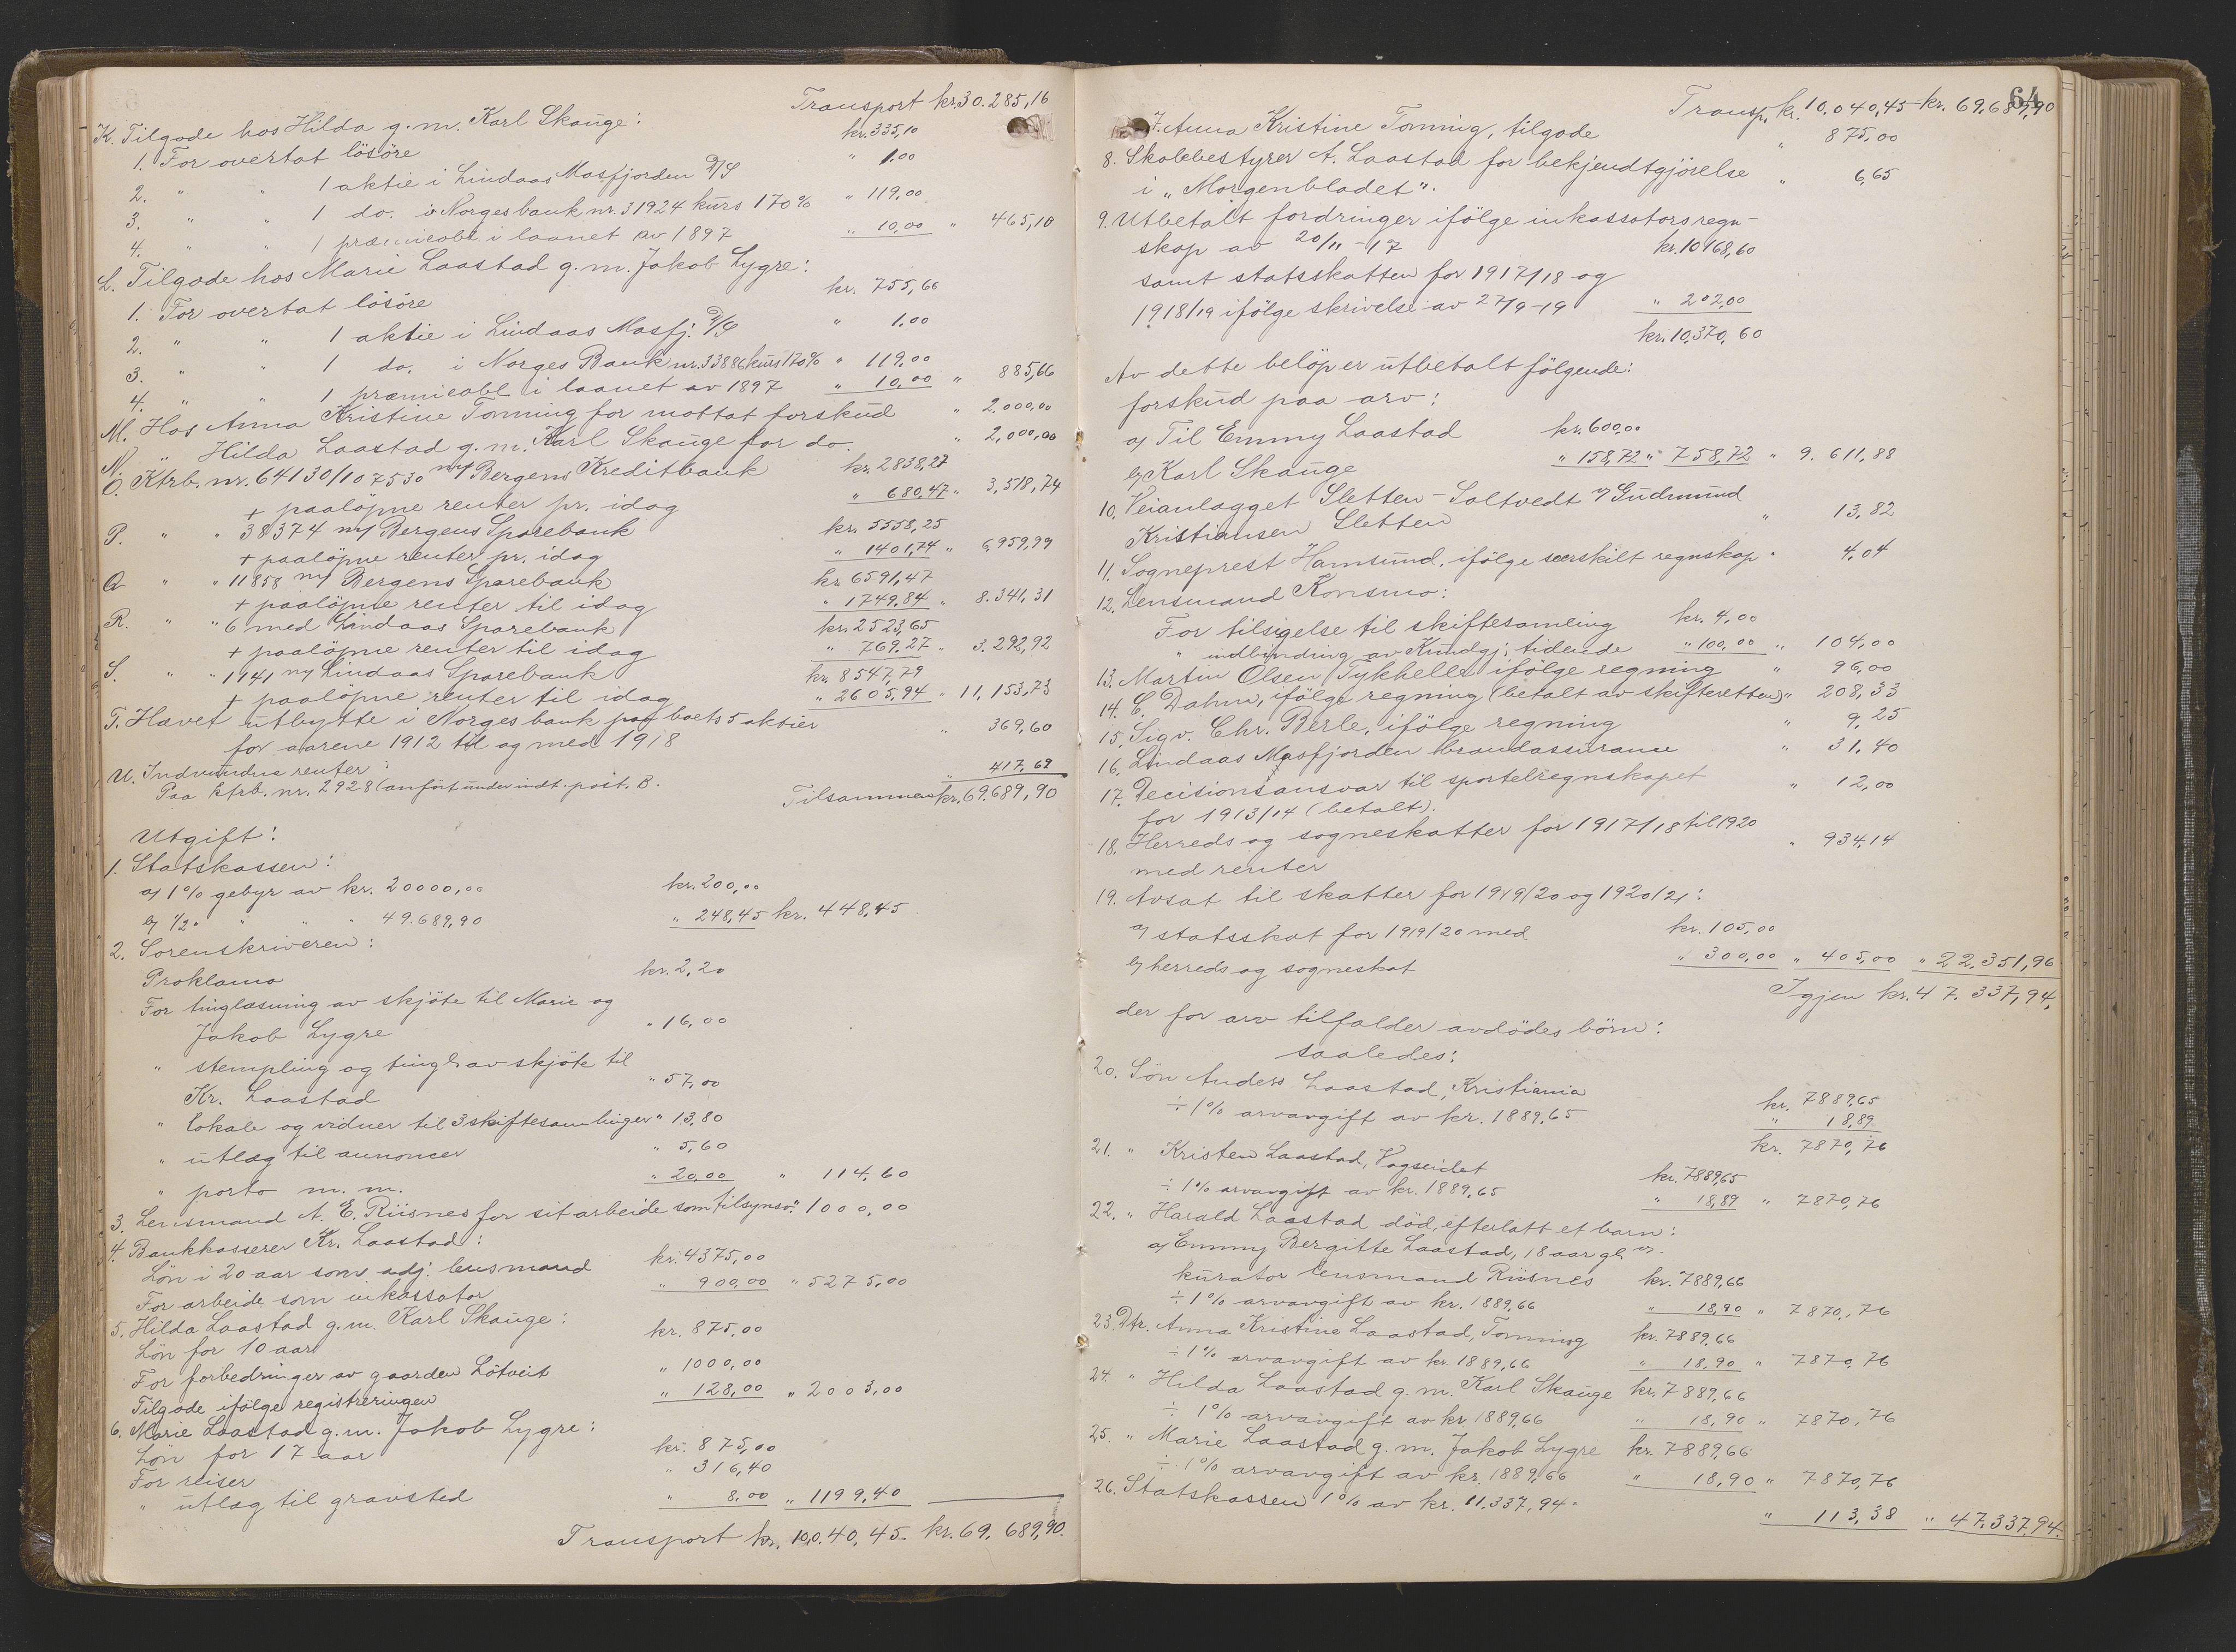 Transport kr. 30.285,16
K. Tilgode hos Hilda g. m. Karl Skauge:
1. For overtat lösöre kr. 335,10
2. " " 1 aktie i Lindaas Masfjorden D/S " 1,00
3. " " 1 do. i Norges bank nr. 31924 kurs 170% " 119,00
4. " " 1 præmieobl. i laanet av 1897 " 10,00 " 465,10
L. Tilgode hos Marie Laastad g. m. Jakob Lygre:
1. For overtat lösöre kr. 755,66
2. " " 1 aktie i Lindaas Masfj. D/S " 1,00
3. " " 1 do. i Norges Bank nr. 33886 kurs 170% " 119,00
4. " " 1 præmieobl. i laanet av 1897 " 10,00 " 885,66
M. Hos Anna Kristine Tonning for mottat forskud " 2.000,00
N. " Hilda Laastad g. m. Karl Skauge for do. " 2,000,00
O. Ktrb. nr. 64130/107530 m/ Bergens Kreditbank kr. 2838,27
+ paalöpne renter pr. idag " 680,47 " 3,518,74
P. " " 38374 m/ Bergens Sparebank kr. 5558,25
+ paalöpne renter pr. idag " 1401,74 " 6,959,99
Q " " 11858 m/ Bergens Sparebank kr. 6591,47
+ paalöpne renter til idag " 1749,84 " 8.341,31
R. " " 6 med Lindaas Sparebank kr. 2523,65
+ paalöpne renter til idag " 769,27 " 3.292,92
S. " " 1141 m/ Lindaas Sparebank kr. 8547,79
+ paalöpne renter til idag " 2605,94 " 11,153,73
T. Hævet utbytte i Norges bank paa boets 5 aktier
for aarene 1912 til og med 1918 " 369,60
U. Indvundne renter:
Paa ktrb. nr. 2928 (anfört under indt. post. B. " 417,69
Tilsammen kr. 69.689,90
Utgift:
1. Statskassen:
a) 1% gebyr av kr. 20000,00 kr. 200,00
b) 1/2 " " " " 49.689,90 " 248,45 kr. 448,45
2. Sorenskriveren:
Proklama kr. 2,20
For tinglæsning av skjöte til Marie og
Jakob Lygre " 16,00
" stempling og tingl. av skjöte til
Kr. Laastad " 57,00
" lokale og vidner til 3 skiftesamlinger " 13,80
" utlæg til annoncer " 5,60
" porto m. m. " 20,00 " 114,60
3. Lensmand A. E. Risnes for sit arbeide som tilsynsv. " 1000,00
4. Bankkasserer Kr. Laastad:
Lön i 20 aar som adj. lensmand kr. 4375,00
For arbeide som inkassator " 900,00 " 5275,00
5. Hilda Laastad g. m. Karl Skauge:
Lön for 10 aar kr. 875,00
For forbedringer av gaarden Lötveit " 1000,00
Tilgode ifölge registreringen " 128,00 " 2003,00
6. Marie Laastad g. m. Jakob Lygre:
Lön for 17 aar kr. 875,00
For reiser " 316,40
" utlæg til gravsted " 8,00 " 1199,40
Transport kr. 10,0.40,45. kr. 69.689,90.
64
Transp. kr. 10,040,45 kr. 69.689,90
7. Anna Kristine Tonning, tilgode " 875,00
8. Skolebestyrer A. Laastad for bekjendtgjörelse
i „Morgenbladet". " 6,65
9. Utbetalt fordringer ifölge inkassators regn-
skap av 20/11-17 kr. 10168,60
samt statsskatten for 1917/18 og
1918/19 ifölge skrivelse av 27/9-19 " 202,00
kr. 10,370,60
Av dette belöp er utbetalt fölgende:
forskud paa arv:
a) Til Emmy Laastad kr. 600,00
b) Karl Skauge " 158,72 " 758,72 " 9.611,88
10. Veianlægget Sletten-Saltvedt v/ Gudmund
Kristiansen Sletten " 13,82
11. Sogneprest Hamsund, ifölge særskilt regnskap " 4,04
12. Lensmand Konsmo:
For tilsigelse til skiftesamling kr. 4,00
" indbinding av Kundgj. tidende " 100,00 " 104,00
13. Martin Olsen Tykhelle ifölge regning " 96,00
14. C. Dahm, ifölge regning (betalt av skifteretten) " 208,33
15. Sigv. Chr. Berle, ifölge regning " 9,25
16. Lindaas Masfjorden brandassurance " 31,40
17. Decisionsansvar til sportelregnskapet
for 1913/14 (betalt). " 12,00
18. Herreds og sogneskatter for 1917/18 til 1920
med renter " 934,14
19. Avsat til skatter for 1919/20 og 1920/21:
a) statsskat for 1919/20 med kr. 105,00
b) herreds og sogneskat " 300,00 " 405,00 " 22,351,96
Igjen kr. 47.337,94,
der for arv tilfalder avdödes börn:
saaledes:
20. Sön Anders Laastad, Kristiania kr. 7889,65
÷ 1% arvavgift av kr. 1889,65 " 18,89
kr. 7870,76
21. " Kristen Laastad, Vagseidet kr. 7889,65
÷ 1% arvavgift av kr. 1889,65 " 18,89 " 7870,76
22. " Harald Laastad död, efterlatt et barn:
a) Emmy Bergitte Laastad, 18 aar gl. v.
kurator lensmand Risnes kr. 7889,66
÷ 1% arvavgift av kr. 1889,66 " 18,90 " 7870,76
23. Dtr. Anna Kristine Laastad, Tonning kr. 7889,66
÷ 1% arvavgift av kr. 1889,66 " 18,90 " 7870,76
24. " Hilda Laastad g. m. Karl Skauge kr. 7889,66
÷ 1% arvavgift av kr. 1889,66 " 18,90 " 7870,76
25. " Marie Laastad g. m. Jakob Lygre kr. 7889,66
÷ 1% arvavgift av kr. 1889,66 " 18,90 " 7870,76
26. Statskassen 1% av kr. 11.337,94. " 113,38 " 47.337,94.